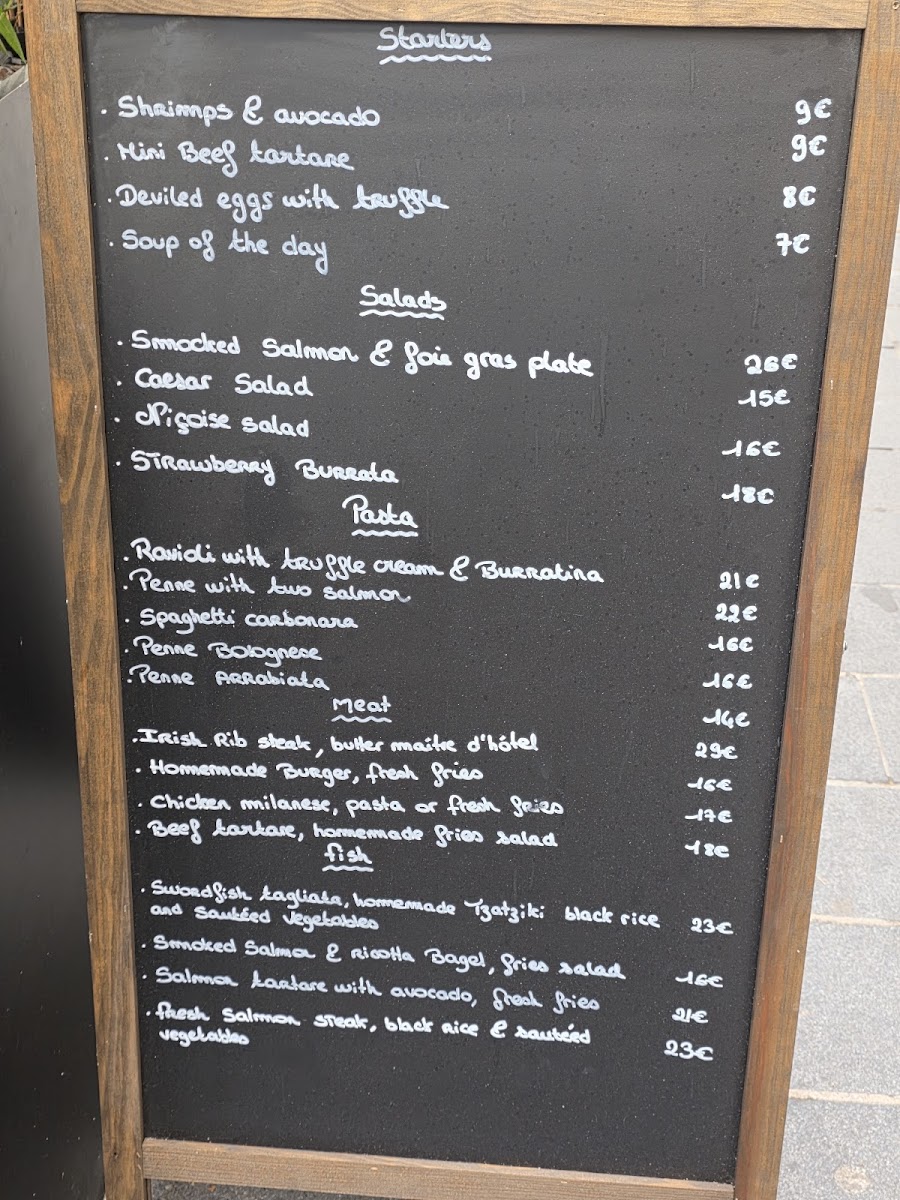 Starters
· Shrimps & avocado 9€
· Mini Beef tartare 9€
· Deviled eggs with truffle 8€
· Soup of the day 7€
Salads
· Smocked Salmon & foie gras plate 26€
· Caesar Salad 15€
· Niçoise salad 16€
· Strawberry Burrata 18€
Pasta
· Ravioli with truffle cream & Burratina 21€
· Penne with two salmon 22€
· Spaghetti carbonara 16€
· Penne Bolognese 16€
· Penne Arrabiata 14€
Meat
· Irish Rib steak, butter maître d'hôtel 29€
· Homemade Burger, fresh fries 16€
· Chicken milanese, pasta or fresh fries 17€
· Beef tartare, homemade fries salad 18€
fish
· Swordfish tagliata, homemade Tzatziki black rice 23€
and sautéed vegetables
· Smoked Salmon & ricotta Bagel, fries salad 16€
· Salmon tartare with avocado, fresh fries 21€
· fresh Salmon steak, black rice & sautéed 23€
vegetables